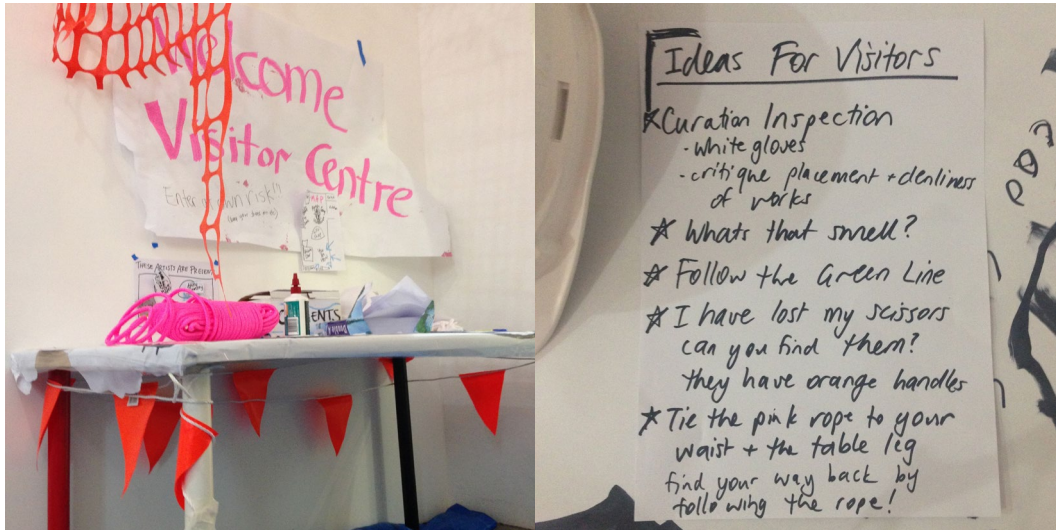 Welcome
Visitor Centre
Enter own risk"
THESE ARTISTS ARE PRESENT
MAP
ENTS
Ideas For Visitors
Curation Inspection
- white gloves
- critique placement + clenliness
of works
Whats that smell?
Follow the Green Line
I have lost my scissors
can you find them?
they have orange handles
Tie the pink rope to your
waist + the table leg
find your way back by
following the rope!